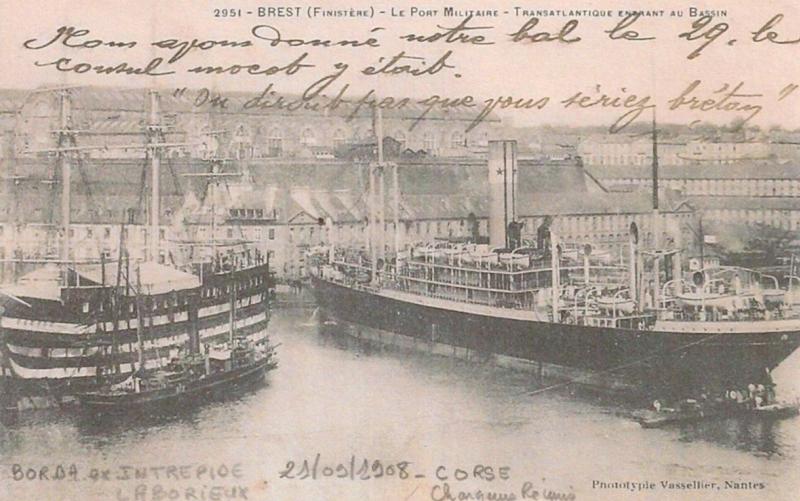 2951 - BREST (FINISTÈRE) - LE PORT MILITAIRE - TRANSATLANTIQUE ENTRANT AU BASSIN
Nous avons donné notre bal le 29, le
consul mocob y était.
"On diroit pas que vous sériez brétan"
BORDA ex INTREPIDE 21/09/1908 - CORSE
LABORIEUX Chargeurs Réunis
Phototypie Vassellier, Nantes